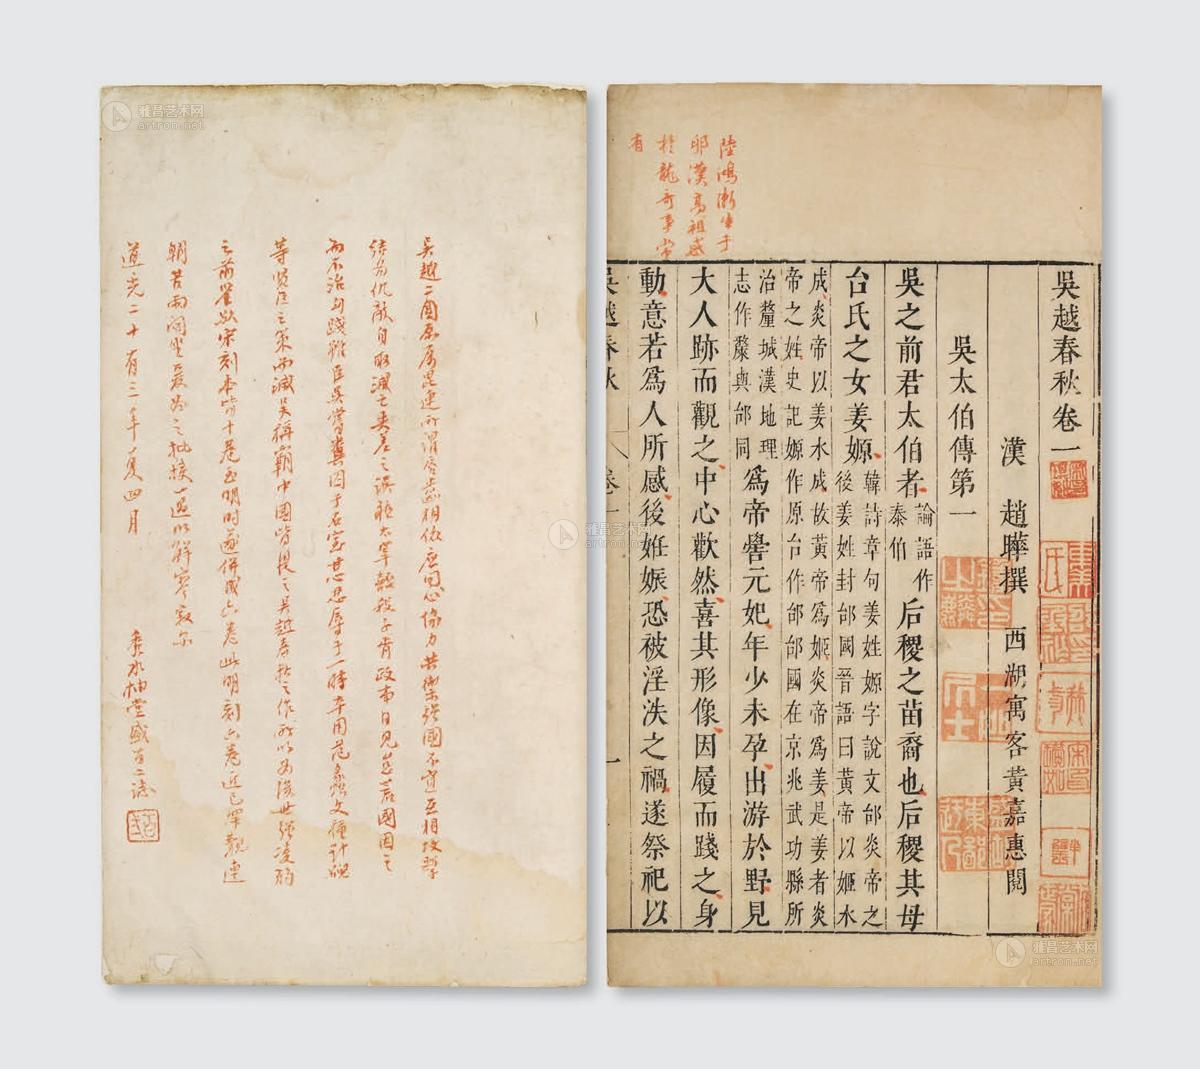 吳越春秋卷一
漢　趙曄撰　西湖寓客黃嘉惠閱
吳太伯傳第一
吳之前君太伯者論語作泰伯后稷之苗裔也后稷其母
台氏之女姜嫄韓詩章句姜姓嫄字說文邰炎帝之
後姜姓封邰國晉語曰黃帝以姬水
成炎帝以姜水成故黃帝爲姬炎帝爲姜是姜者炎
帝之姓史記嫄作原台作邰邰國在京兆武功縣所
治釐城漢地理
志作斄與邰同爲帝嚳元妃年少未孕出游於野見
大人跡而觀之中心歡然喜其形像因履而踐之身
動意若爲人所感後姙娠恐被淫泆之禍遂祭祀以
吳越春秋　卷一　一
陸鴻漸生于
卵漢高祖感
於龍奇事常
有
吳越二國原屬昆連所謂唇齒相依应同心協力共禦強國不宜互相攻擊
結为仇敵自取滅亡夫差之誤聽太宰嚭殺子胥政事日見怠荒國因之
而不治句踐雖臣吳嘗糞囚于石室其忍辱于一時卒用范蠡文種計硯
等賢臣之策而滅吳稱霸中國皆提之吳越春秋之作所以为後世強凌弱
之前鑒欤宋刻本皆十卷至明時遂併成六卷此明刻六卷近已罕觏連
朝苦雨閒坐爰为之批校一过以解寥寂尔
道光二十有三年夏四月
秀水柚堂盛百二志
雅昌艺术网
artron.net
雅昌艺术网
artron.net
雅昌艺术网
artron.net